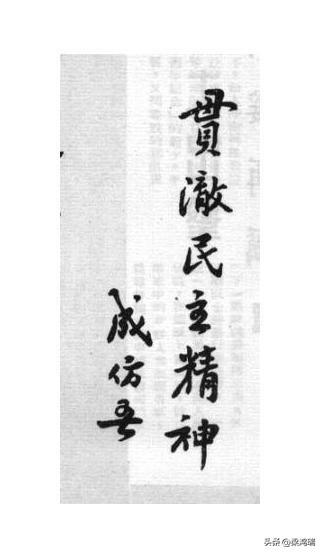 貫澈民主精神
成仿吾
头条@梁鸿瑞